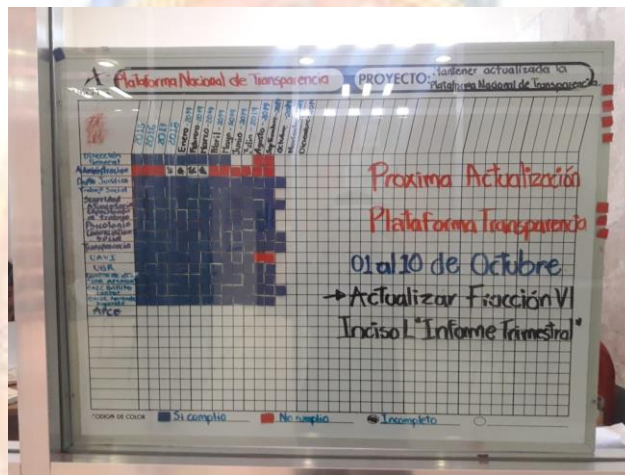 Plataforma Nacional de Transparencia
PROYECTO: Mantener actualizada la
Plataforma Nacional de Transparencia.
2015
2016
2017
2018
Enero 2019
Febrero 2019
Marzo 2019
Abril 2019
Mayo 2019
Junio 2019
Julio 2019
Agosto 2019
Septiembre
Octubre
Diciembre
Dirección
General
Administración
Depto Jurídico
Trabajo Social
Seguridad
Alimentaria
Psicología
Comunicación
Social
Transparencia
UAVI
UBR
Proxima Actualización
Plataforma Transparencia
01 al 10 de Octubre
→ Actualizar Fracción VI
Inciso L "Informe Trimestral"
CODIGO DE COLOR
Si cumplio
No cumplio
Incompleto